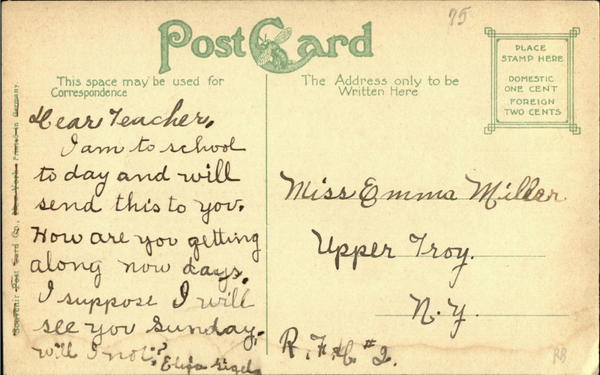 75
Post Card
PLACE
STAMP HERE
DOMESTIC
ONE CENT
FOREIGN
TWO CENTS
This space may be used for
Correspondence
The Address only to be
Written Here
Dear Teacher,
I am to school
to day and will
send this to you.
How are you getting
along now days.
I suppose I will
see you Sunday,
will I not?
Miss Emma Miller
Upper Troy.
N.Y.
#2.
Souvenir Post Card Co.,
RB